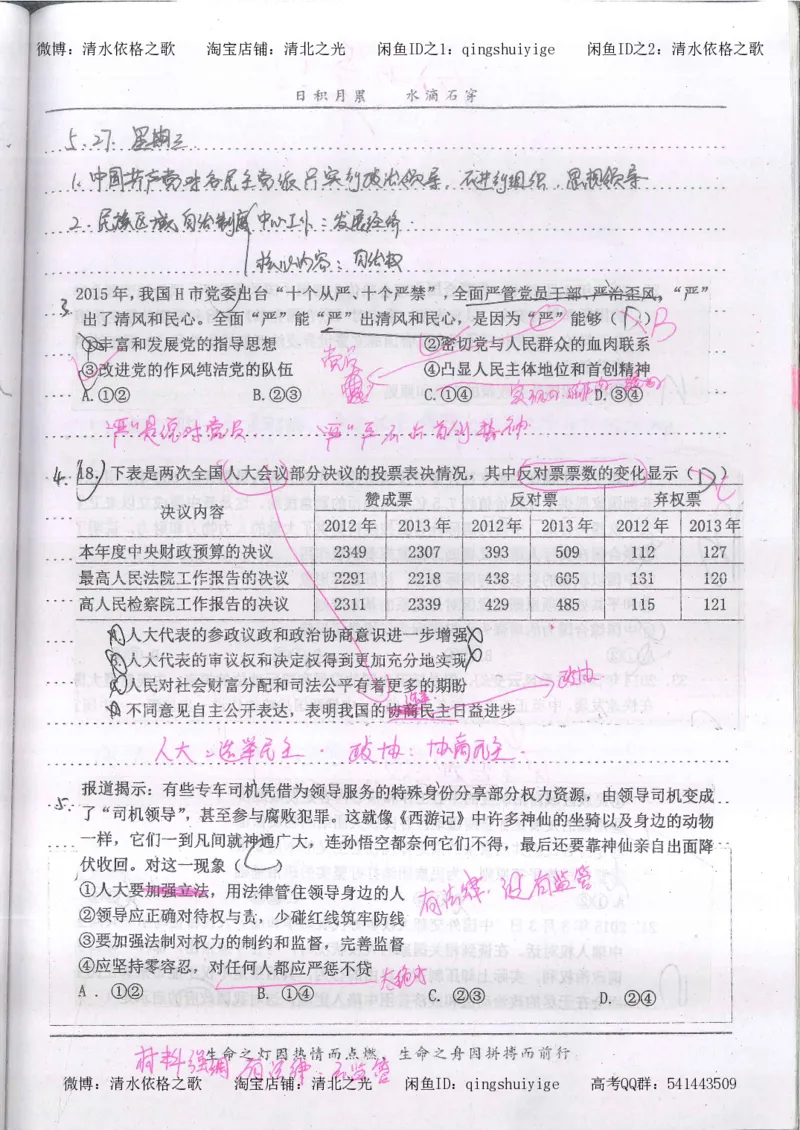 微博：清水依格之歌 淘宝店铺：清北之光 闲鱼ID之1：qingshuiyige 闲鱼ID之2：清水依格之歌
日积月累 水滴石穿
5.27. 星期三
1. 中国共产党对各民主党派只实行政治领导，不进行组织、思想领导
2. 民族区域自治制度 中心工作：发展经济.
核心内容：自治权
3. 2015年，我国H市党委出台“十个从严、十个严禁”，全面严管党员干部、严治歪风，“严”
出了清风和民心。全面“严”能“严”出清风和民心，是因为“严”能够（ D ）B
①丰富和发展党的指导思想 ②密切党与人民群众的血肉联系
③改进党的作风纯洁党的队伍 ④凸显人民主体地位和首创精神
党员
A.①② B.②③ C.①④ D.③④
“严”是说对党员 “严”严不出首创精神
4. 18. 下表是两次全国人大会议部分决议的投票表决情况，其中反对票票数的变化显示（ D ）C
决议内容 赞成票 反对票 弃权票
2012年 2013年 2012年 2013年 2012年 2013年
本年度中央财政预算的决议 2349 2307 393 509 112 127
最高人民法院工作报告的决议 2291 2218 438 605 131 120
高人民检察院工作报告的决议 2311 2339 429 485 115 121
A.人大代表的参政议政和政治协商意识进一步增强
B.人大代表的审议权和决定权得到更加充分地实现
C.人民对社会财富分配和司法公平有着更多的期盼
政协
D.不同意见自主公开表达，表明我国的协商民主日益进步
人大：选举民主. 政协：协商民主.
5. 报道揭示：有些专车司机凭借为领导服务的特殊身份分享部分权力资源，由领导司机变成
了“司机领导”，甚至参与腐败犯罪。这就像《西游记》中许多神仙的坐骑以及身边的动物
一样，它们一到凡间就神通广大，连孙悟空都奈何它们不得，最后还要靠神仙亲自出面降
伏收回。对这一现象（ C ）
①人大要加强立法，用法律管住领导身边的人
有法律，没有监管
②领导应正确对待权与责，少碰红线筑牢防线
③要加强法制对权力的制约和监督，完善监督
④应坚持零容忍，对任何人都应严惩不贷
太绝对
A．①② B. ①④ C. ②③ D. ②④
生命之灯因热情而点燃，生命之舟因拼搏而前行
材料强调有法律，不监管
微博：清水依格之歌 淘宝店铺：清北之光 闲鱼ID：qingshuiyige 高考QQ群：541443509